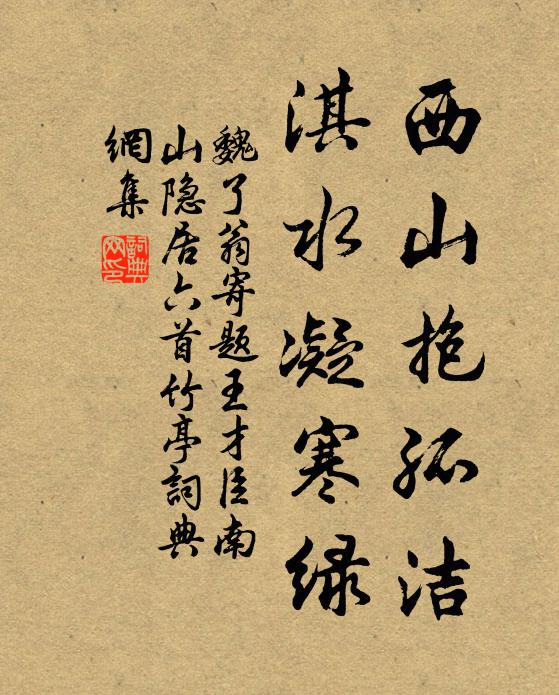 西山抱孤洁
淇水凝寒绿
魏了翁寄题王才臣南
山隐居六首竹亭词典
網集
詞典
网印